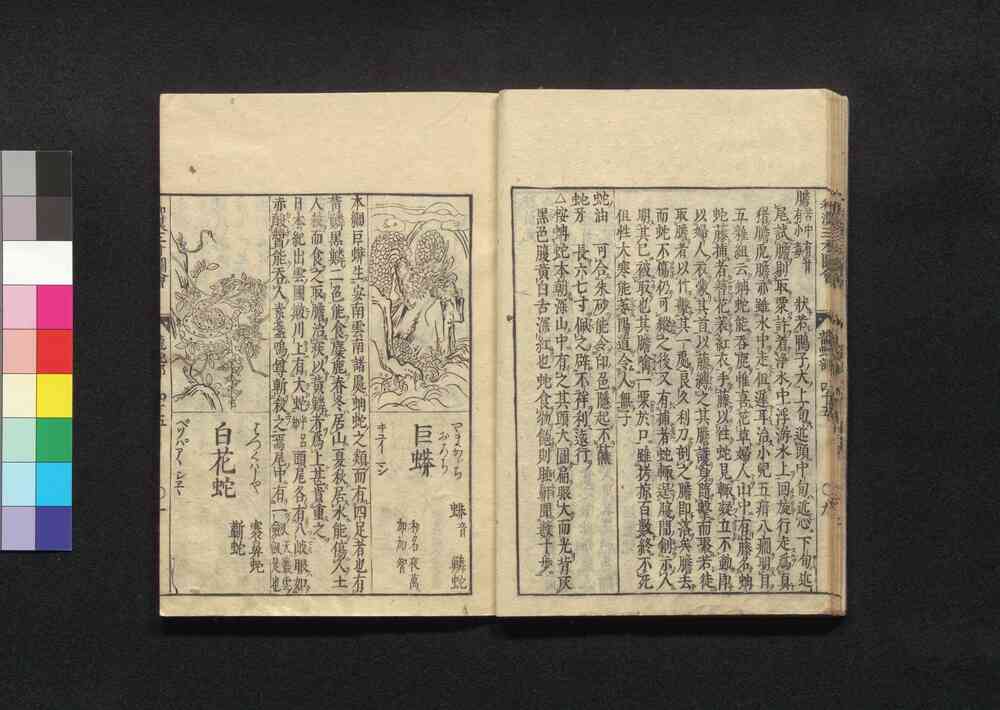 膽 苦中有甘有小毒 状若鴨子大上旬近頭中旬近心下旬近
尾試膽剔取粟許着淨水中浮游水上回旋行走為真
猪膽虎膽亦雖水中走但遲耳治小兒五疳八痢明目
五雜組云蚺蛇能吞鹿惟喜花草婦人山中有藤名蚺
蛇藤捕者簪花衣紅衣手藤以往蛇見輒凝立不動即
以婦人衣蒙其首以藤縛之其膽護身隨擊而聚若徒
取膽者以竹擊其一處良久利刀剖之膽即落矣膽去
而蛇不傷仍可縱之後又有捕者蛇輒逞腹間創示人
明其已被取也其膽噙一粟於口雖拷掠百數終不死
但性大寒能萎陽道令人無子
蛇油 可合朱砂能令印色隱起不
蛇牙 長六七寸佩之辟不祥利遠行
△按蚺蛇本朝深山中有之其頭大圓扁眼大而光背灰
黑色腹黃白舌深紅也蛇食物飽則睡
やまかゝち
おろち
巨蟒
キユイ マン
蚺音 鱗蛇
和名夜萬加加智
本綱巨蟒生安南雲南諸處蚺蛇之類而有四足者也有
黃鱗黑鱗二色能食麋鹿春冬居山夏秋居水能傷人土
人殺而食之取膽治疾以黃鱗者為上甚貴重之
日本紀出雲國簸川上有大蛇 頭尾各有八岐眼如
赤酸醬能吞人素盞嗚尊斬殺之
白花蛇
褰鼻蛇
蘄蛇